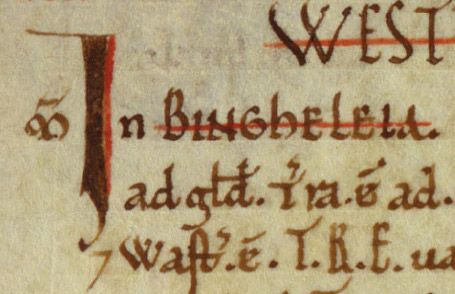 WEST
ꝏ̃ In BINGHELEIA.
ad gld̃. T'ra. ẽ ad.
⁊ Wast'. ẽ. T. R. E. ua